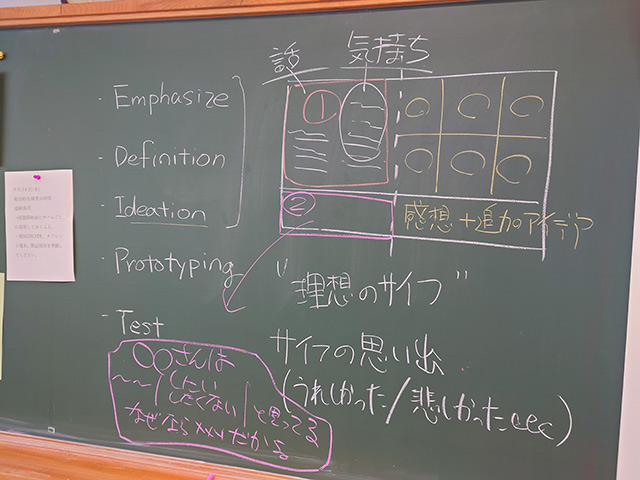 話 気持ち
・Emphasize
・Definition
・Ideation
・Prototyping
・Test
①
②
感想+追加アイデア
"理想のサイフ"
サイフの思い出
(うれしかった/悲しかったetc)
〇〇さんは
〜〜/したい
したくない/と思ってる
なぜなら×××だから